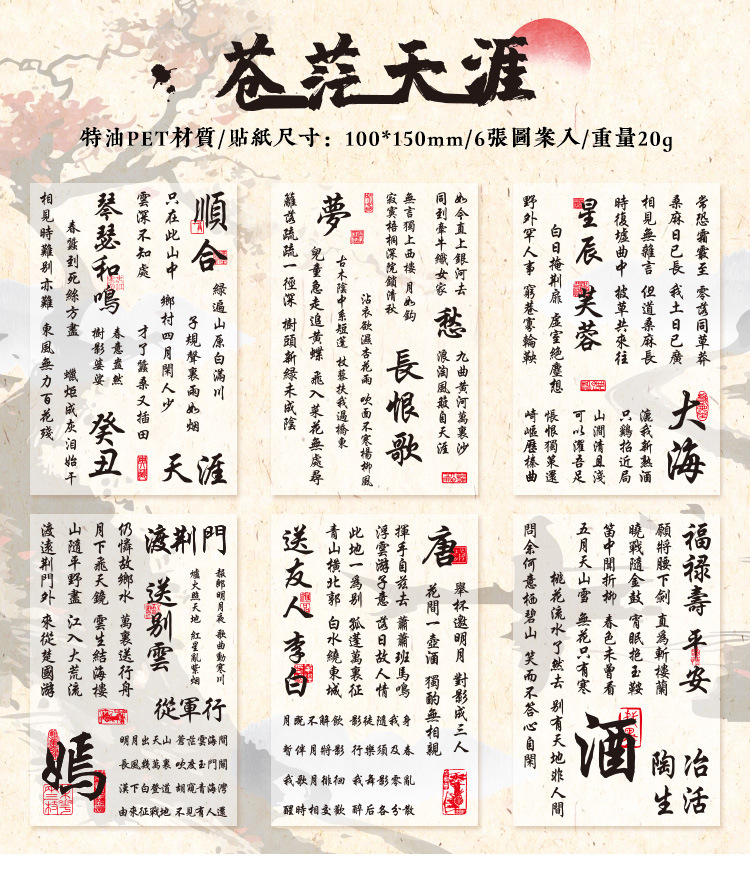 苍茫天涯
特油PET材質/貼紙尺寸：100*150mm/6張圖案入/重量20g
順合
綠遍山原白滿川
子規聲裏雨如烟
只在此山中
雲深不知處
鄉村四月閑人少
才了蠶桑又插田
天涯
琴瑟和鳴
春意盎然
樹影婆娑
癸丑
春蠶到死絲方盡 蠟炬成灰泪始干
相見時難別亦難 東風無力百花殘
如今直上銀河去
同到牽牛織女家
愁
九曲黄河萬裏沙
浪淘風簸自天涯
無言獨上西樓 月如鈎
寂寞梧桐深院鎖清秋
長恨歌
沾衣欲濕杏花雨 吹面不寒楊柳風
古木陰中系短篷 杖藜扶我過橋東
夢
兒童急走追黄蝶 飛入菜花無處尋
籬落疏疏一徑深 樹頭新綠未成陰
常恐霜霰至 零落同草莽
桑麻日已長 我土日已廣
相見無雜言 但道桑麻長
時復墟曲中 披草共來往
大海
漉我新熟酒
只鷄招近局
山澗清且淺
可以濯吾足
悵恨獨策還
崎嶇歷榛曲
星辰
芙蓉
白日掩荆扉 虚室絶塵想
野外罕人事 窮巷寡輪鞅
渡荆門
送别雲
報郎明月夜 歌曲動寒川
爐火照天地 紅星亂紫烟
從軍行
仍憐故鄉水 萬裏送行舟
月下飛天鏡 雲生結海樓
山隨平野盡 江入大荒流
渡遠荆門外 來從楚國游
嫣
明月出天山 蒼茫雲海間
長風幾萬裏 吹度玉門關
漢下白登道 胡窺青海灣
由來征戰地 不見有人還
唐
舉杯邀明月 對影成三人
花間一壺酒 獨酌無相親
揮手自兹去 蕭蕭班馬鳴
浮雲游子意 落日故人情
此地一爲别 孤蓬萬裏征
青山横北郭 白水繞東城
送友人 李白
月既不解飲 影徒隨我身
暫伴月將影 行樂須及春
我歌月徘徊 我舞影零亂
醒時相交歡 醉后各分散
福禄壽 平安
願將腰下劍 直爲斬樓蘭
曉戰隨金鼓 宵眠抱玉鞍
笛中聞折柳 春色未曾看
五月天山雪 無花只有寒
冶活
陶生
酒
桃花流水了然去 别有天地非人間
問余何意栖碧山 笑而不答心自閑